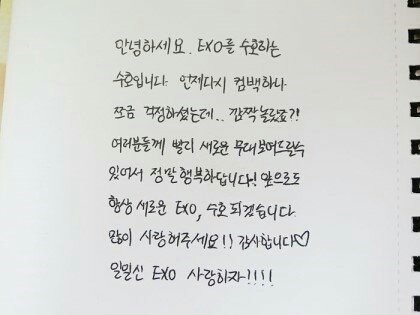 안녕하세요. EXO를 수호하는
수호입니다. 언제다시 컴백하나
쪼금 걱정하셨는데.. 깜짝놀랐죠?!
여러분들께 빨리 새로운 무대보여드릴수
있어서 정말행복하답니다! 앞으로도
항상 새로운 EXO, 수호 되겠습니다.
많이 사랑해주세요!! 감사합니다♡
일밀신 EXO 사랑하자!!!!